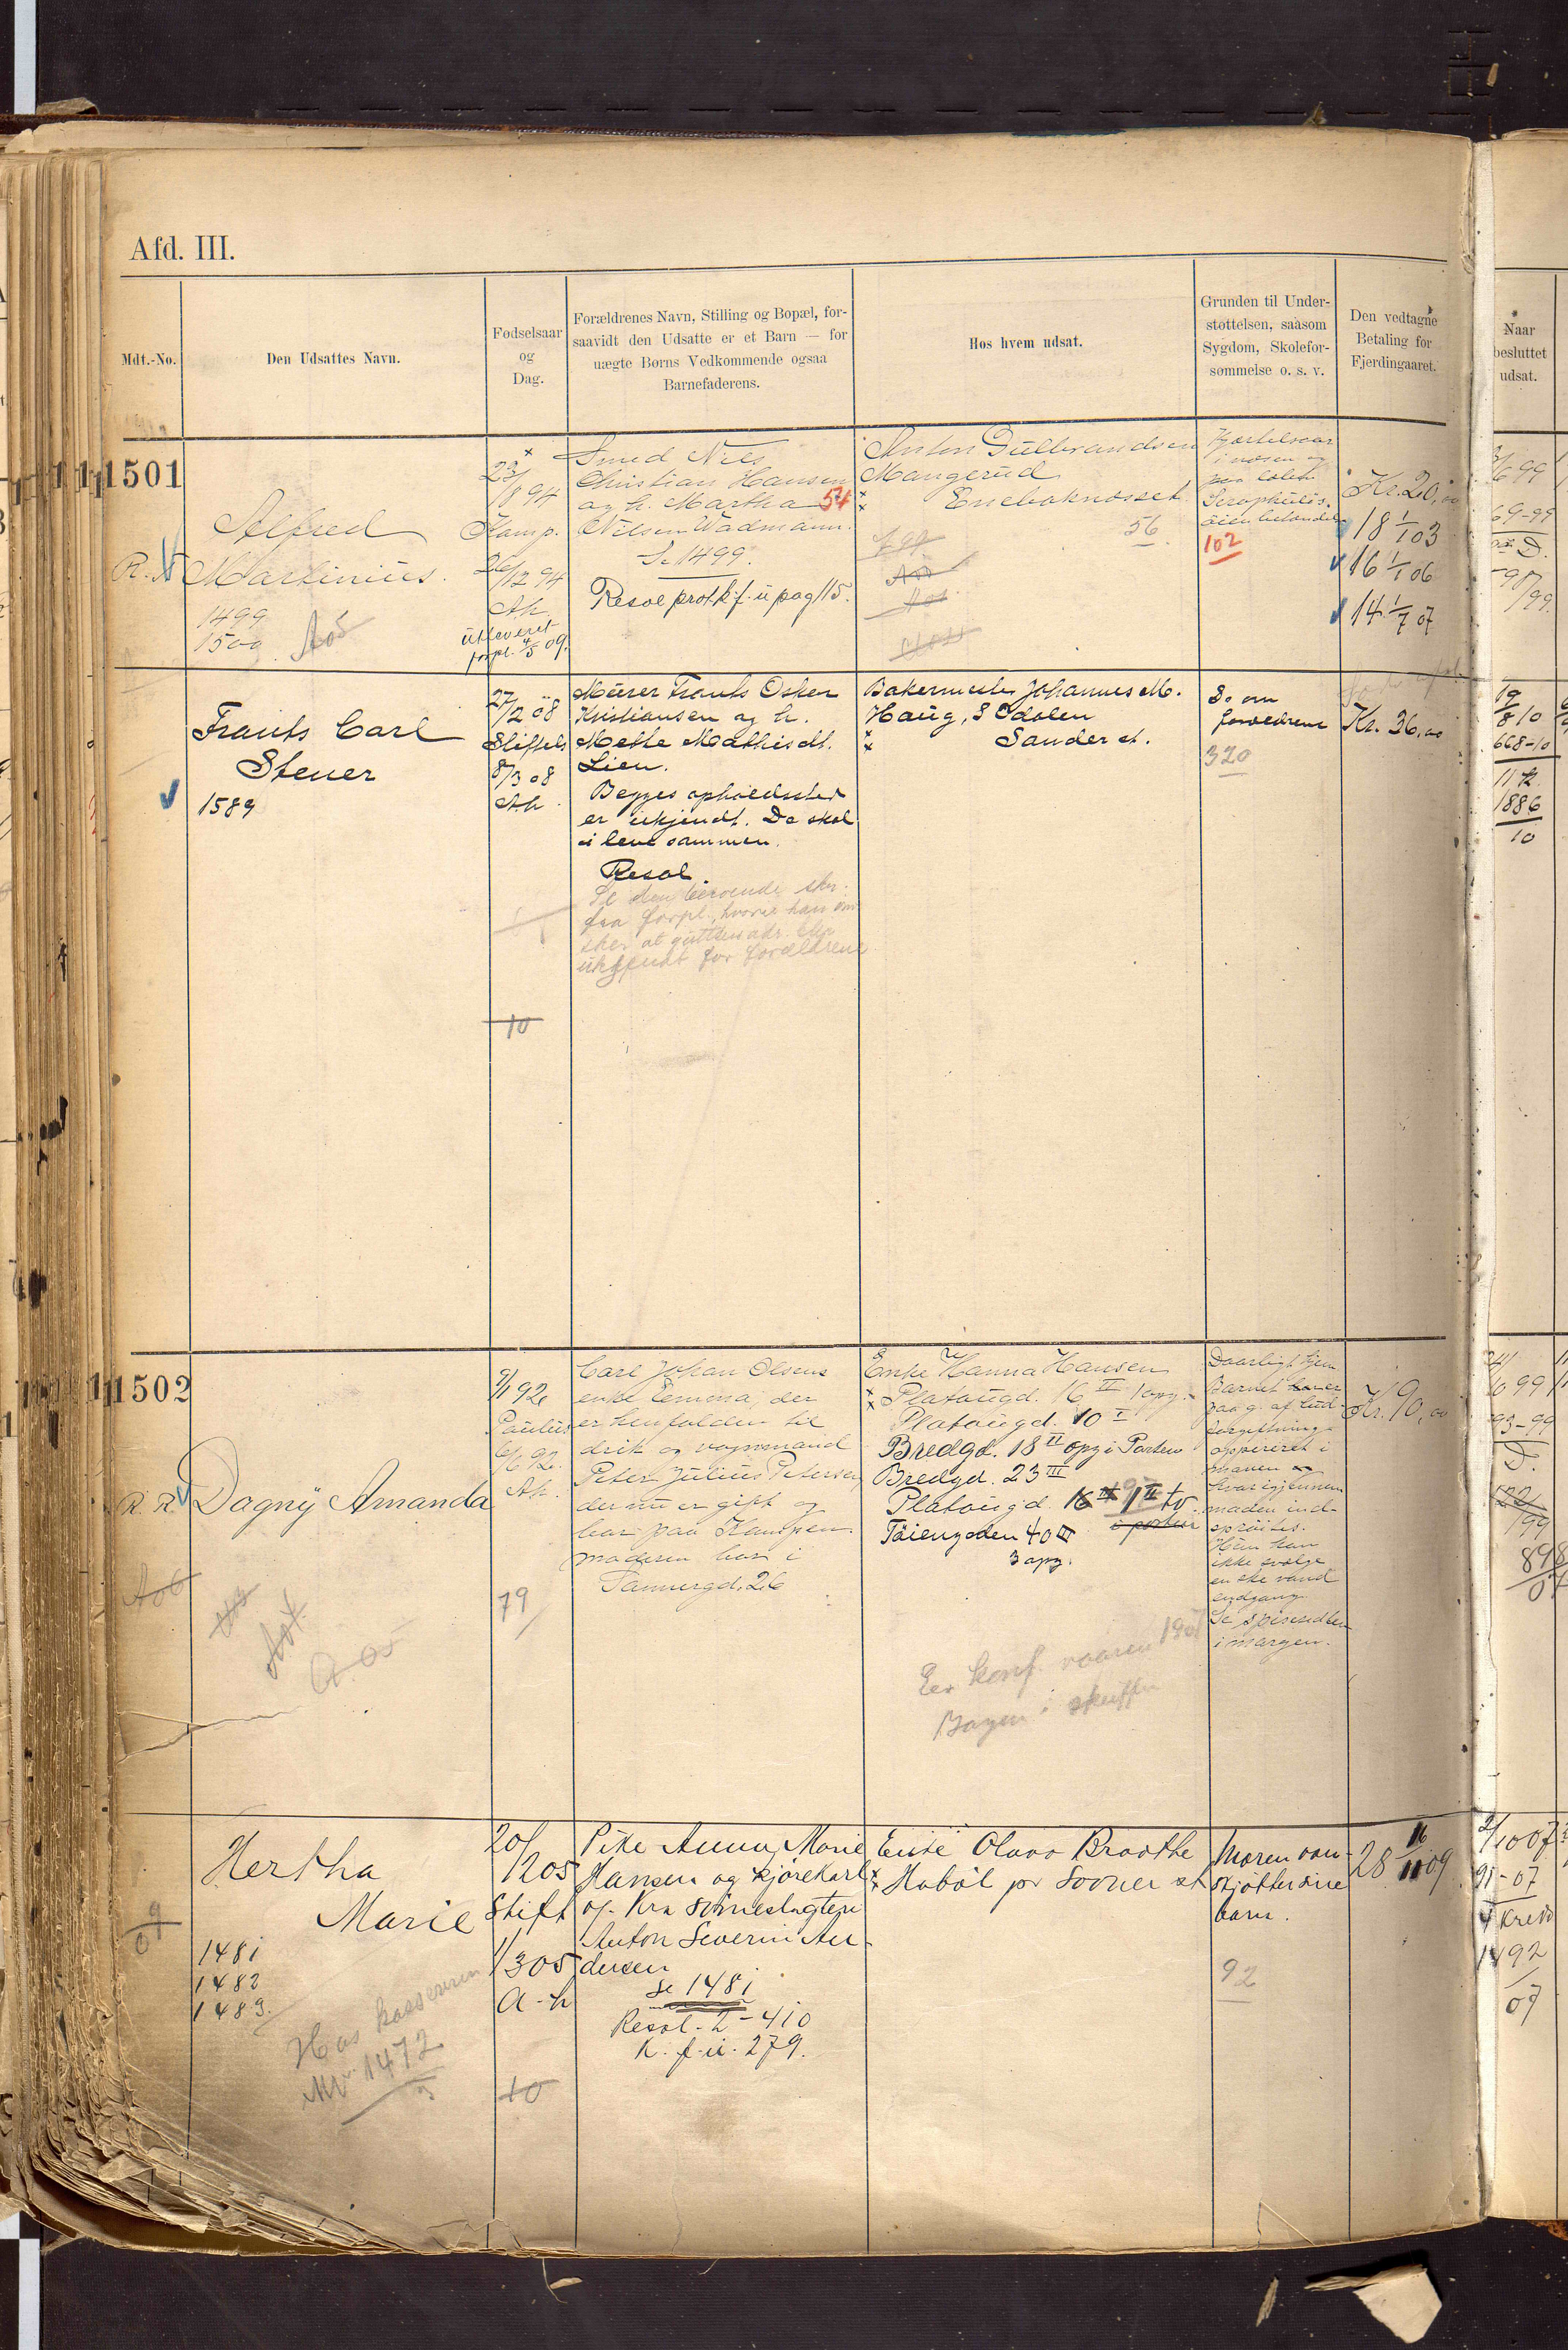 Afd. III.
Mdt.-No.
Den Udsattes Navn.
Fødselsaar
og
Dag.
Forældrenes Navn, Stilling og Bopæl, for-
saavidt den Udsatte er et Barn — for
uægte Børns Vedkommende ogsaa
Barnefaderens.
Hos hvem udsat.
Grunden til Under-
støttelsen, saasom
Sygdom, Skolefor-
sømmelse o. s. v.
Den vedtagne
Betaling for
Fjerdingaaret.
Naar
besluttet
udsat.
1501
Alfred
R. R. Martinius.
1499
1500
23/8 94
Kamp.
26/12 94
Ah.
utleveret
forpl. 4/5 09.
Smed Nils
Christian Hansen
og h. Martha 54
Nilsen Wadmann.
Se 1499.
Resol prot. k. f. u pag 115.
Anton Gulbrandsen
Mangerud
Enebaknesset
56
Kjertelsaar
i næsen og
102
Kr. 20,00
18 1/1 03
16 1/1 06
14 1/7 07
Frants Carl
Stener
1589
27/2 08
Stiftels
8/3 08
Ah
10
Murer Frants Oskar
Kristiansen og h.
Mette Mathisdt.
Lien.
Begges opholdssted
er ukjendt. De skal
ei leve sammen.
Resol.
Se den beroende skr.
fra forpl., hvori han øn
sker at guttens adr.
ukjendt for forældrene
Bakermester Johannes M.
Haug, S Odalen
Sander st.
Do om
forældrene
320
Kr. 36,00
19/8 10
668-10
1886
10
1502
R. R. Dagny Amanda
9/1 92
Paulus
6/6 92.
Ah.
79
Carl Johan Olsens
enke Emma, der
er henfalden til
drik og vognmand
Peter Julius Petersen
der nu er gift og
bor paa Kampen
moderen bor i
Tannergd. 26
Enke Hanna Hansen
Platougd. 16 II 1 opg.
Platougd. 10 I
Bredgd. 18 II opg i Porten
Bredgd. 23 III
Platougd. 16
i porten
Töiengaden 40 III
3 opg.
Er konf. vaaren 1907
Bogen i skuffen
Daarligt hjem
Barnet er
paa g. af Lud-
forgiftning
opereret i
maven
hvorigjennem
maden ind-
sprøites.
Hun kan
ikke svælge
en ske vand
endgang
Se spiseseddlen
i margen.
Kr. 90,00
93-99
Hertha
Marie
1481
1482
1483.
Hos kassereren
Nr 1472
20/12 05
Stift
1/3 05
a-h
10
Pike Anna Marie
Hansen og kjørekarl
op. Kra sinneslagten
Anton Severin An-
dersen
Se 1481
Resol. 2-410
k. f. u. 279.
Enke Olava Braathe
Hobøl pr Sooner st
Moren van-
skjøtter sine
barn.
92
28
2/10 07
91-07
1492
07